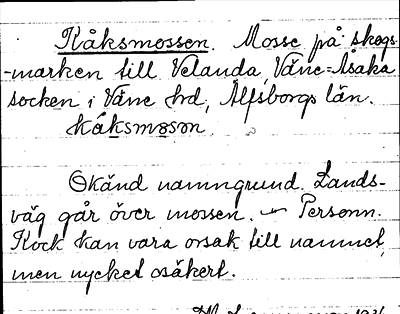 Kåksmossen. Mosse på skogs-
-marken till Velanda, Väne-Åsaka
socken i Väne hrd, Älfsborgs län.
Kåksmosen
Okänd namngrund. Lands-
väg går över mossen. – Personn.
Kock kan vara orsak till namnet,
men mycket osäkert.